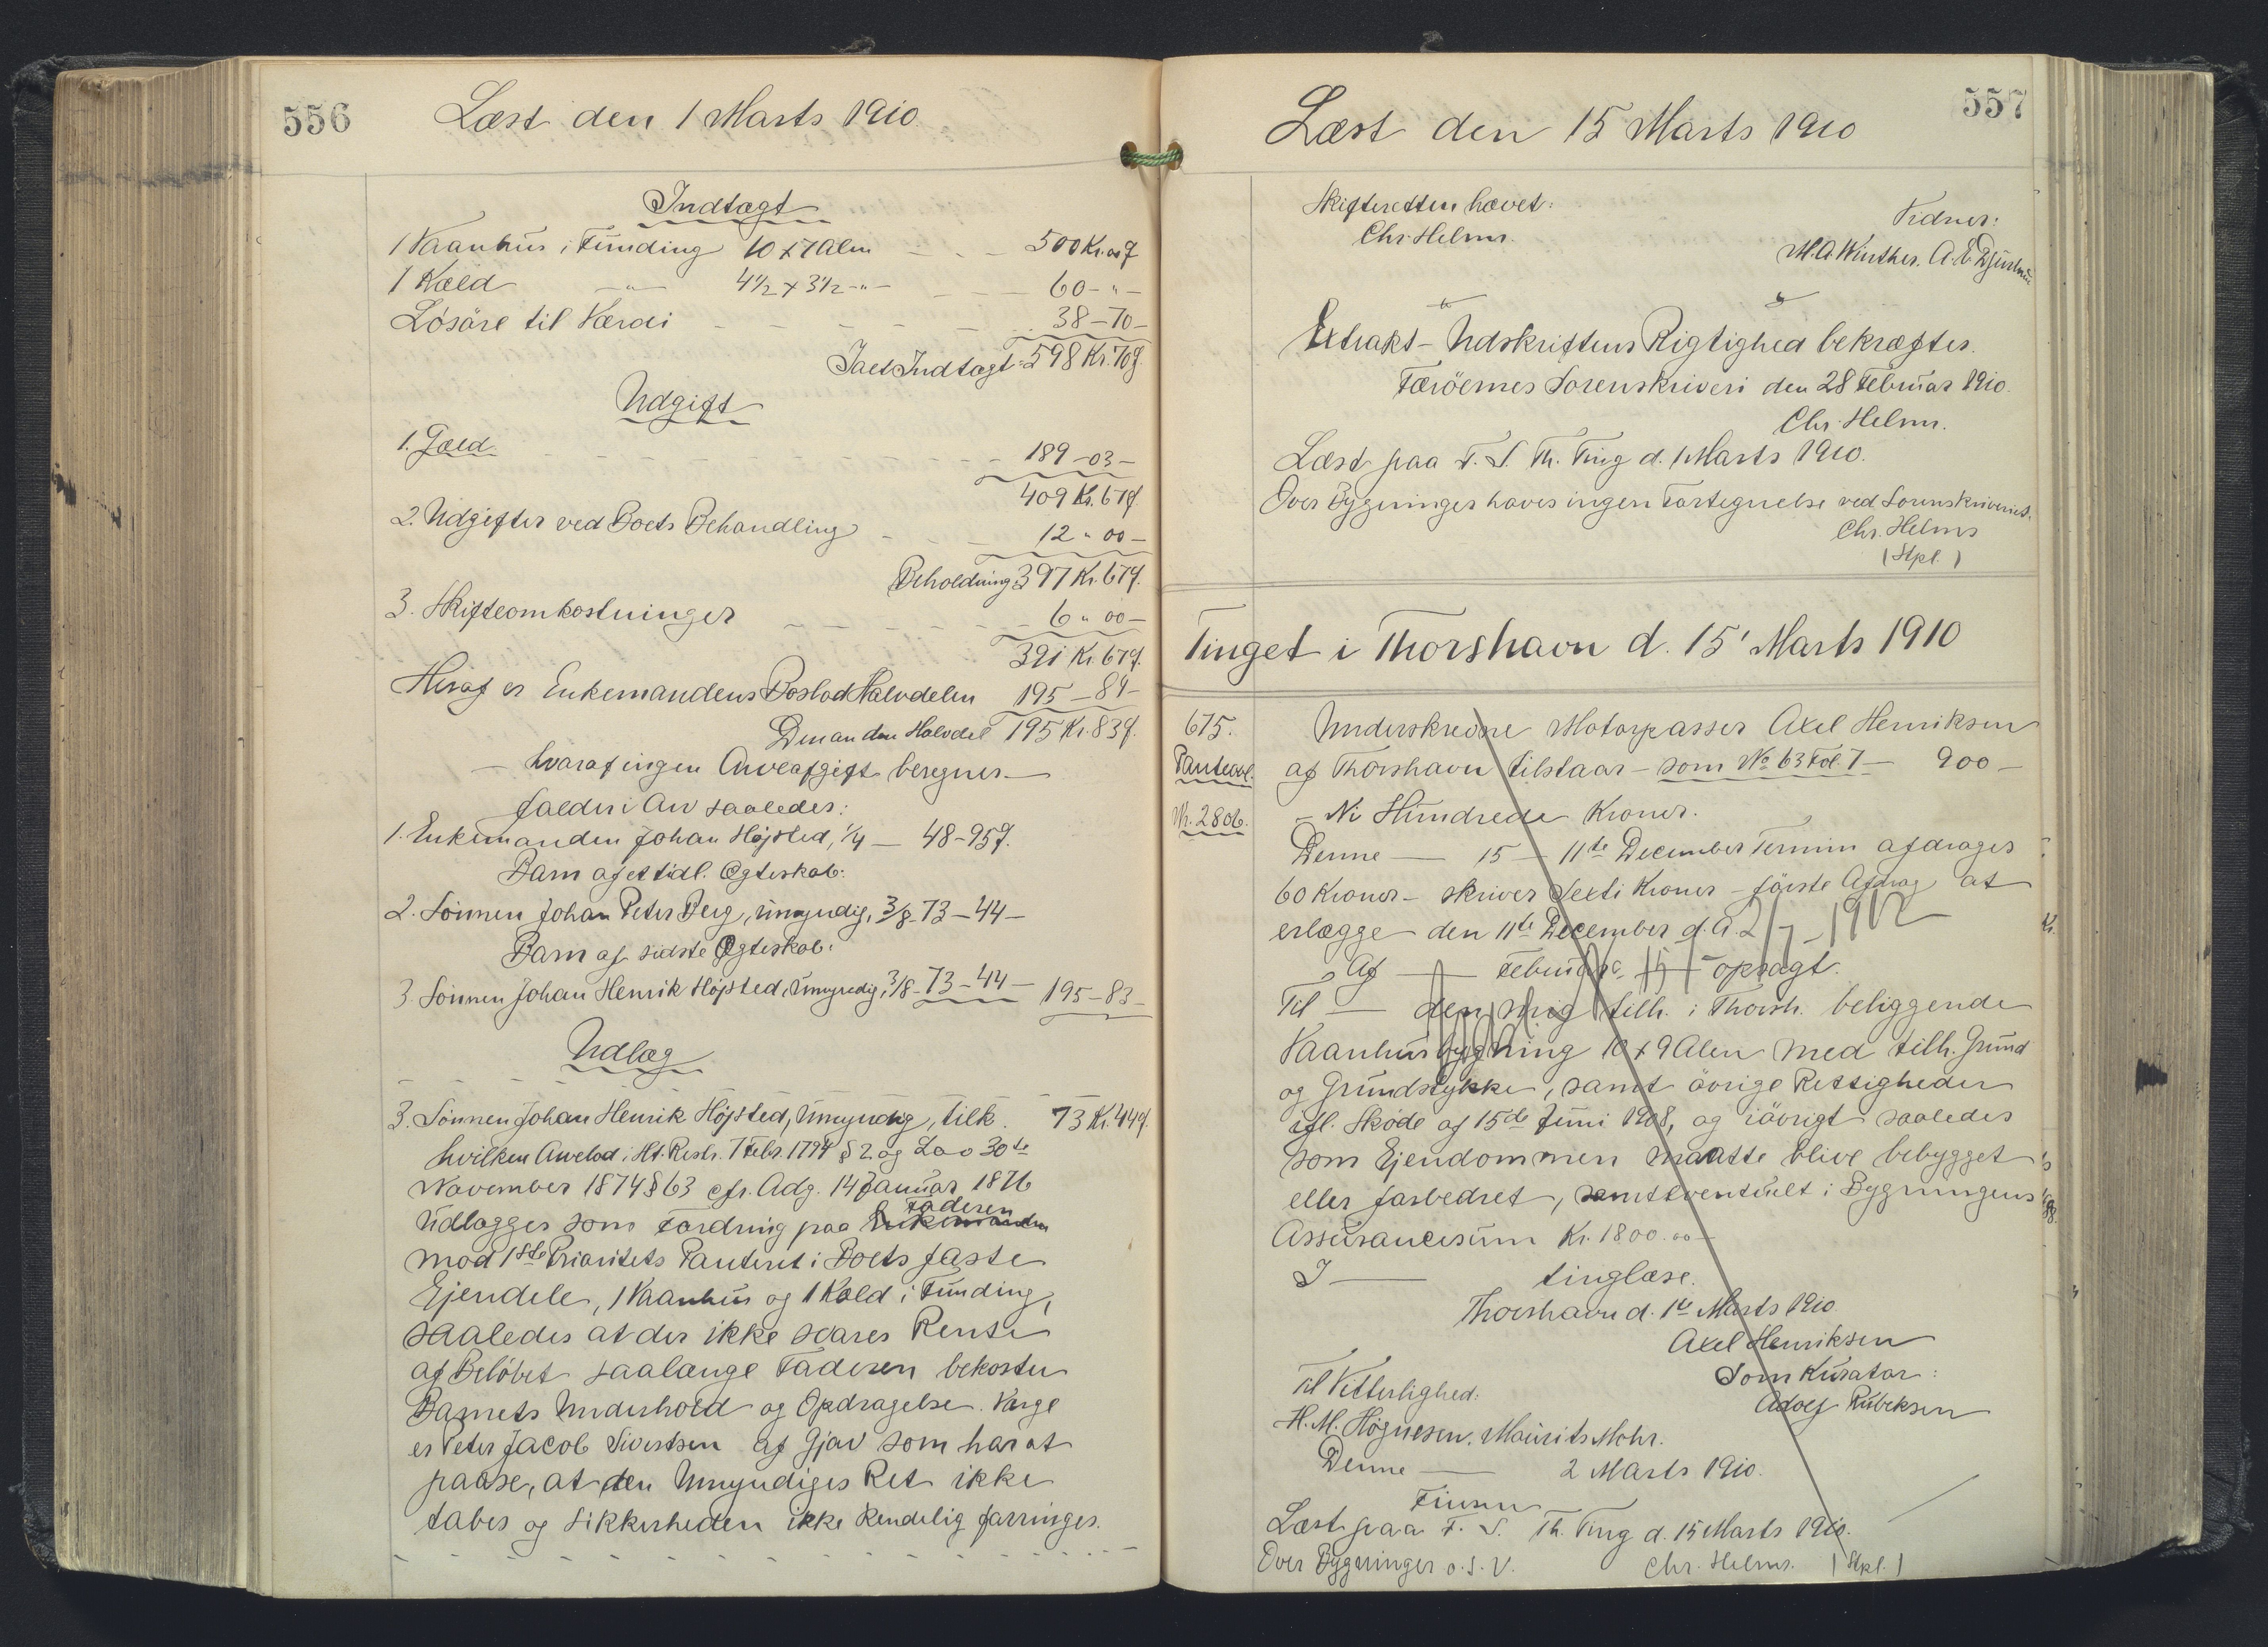 556
Læst den 1 Marts 1910
Indtægt
1 Vaanhús i Fúnding 10 x 7 Alen - - - 500 Kr. 00 f
1 Kæld -"- 4½ x 3½ -"- - - - 60 - " -
Lösöre til Værdi - - - - - - 38 - 70 -
Ialt Indtægt: 598 Kr. 70 f
Udgift
1. Gæld - - - - - - 189 - 03 -
409 Kr. 67 f.
2. Udgifter ved Boets Behandling - - - 12 " 00 -
Beholdning 397 Kr. 67 f.
3. Skifteomkostninger - - - - - 6 " 00 -
391 Kr. 67 f.
Heraf er Enkemandens Boslod Halvdelen 195 - 84 -
Den anden Halvdel 195 Kr. 83 f.
- hvoraf ingen Arveafgift beregnes -
falder i Arv saaledes:
1. Enkemanden Johan Højsted, ¼ - 48 - 95 f.
Barn af et tidl. Ægteskab:
2. Sönnen Johan Peter Berg, úmyndig, 3/8 - 73 - 44 -
Barn af sidste Ægteskab:
3. Sönnen Johan Henrik Højsted, Úmyndig, 3/8 - 73 - 44 - 195 - 83 -
Udlæg
3. Sönnen Johan Henrik Höjsted, Úmyndig, tilk. 73 Kr. 44 f.
hvilken Arvelod i Ht. Reskr. 7 Febr. 1794 § 2 og Lov 30te
November 1874 § 63 cfr. Adg. 14 Janúar 1876
Faderen
Údlægges som Fordring paa Enkemanden
mod 1ste Prioritets Panteret i Boets faste
Ejendele, 1 Vaanhús og 1 Kæld i Fúnding,
saaledes at der ikke svares Rente
af Belöbet saalænge Faderen bekoster
Barnets Underhold og Opdragelse. Værge
er Peter Jacob Sivertsen af Gjov som har at
paase, at den Umyndiges Ret ikke
tabes og Sikkerheden ikke kendelig forringes.
557
Læst den 15 Marts 1910
Skifteretten hævet:
Chr. Helms.
Vidner:
M. A. Winther. A. E. Djurhuus
Extrakt-Udskriftens Rigtighed bekræftes.
Færöernes Sorenskriveri den 28 Februar 1910.
Chr. Helms.
Læst paa F. S. Th. Ting d. 1 Marts 1910.
Over Bygninger haves ingen Fortegnelse ved Sorenskriveriet.
Chr. Helms
(Stpl.)
Tinget i Thorshavn d. 15' Marts 1910
675.
Panteobl.
Nr. 2806.
Underskrevne Motorpasser Axel Henriksen
af Thorshavn tilstaar - som No 63 Fol. 7 - 900 -
- Ni Hundrede Kroner.
Denne — 15 — 11te December Termin afdrages
60 Kroner - skriver Sexti Kroner - förste Afdrag at
erlægge den 11te December d. A. 2/7 - 1912
Af — Februar opsagt.
Til — den mig tilh. i Thorsh. beliggende
Vaanhúsbygning 10 x 9 Alen med tilh. Grúnd
og Grúndstykke, samt övrige Rettigheder
ifl. Sköde af 15de Juni 1908, og iövrigt saaledes
som Ejendommen maatte blive bebygget
eller forbedret, samt eventúelt i Bygningens
Assúrancesúm Kr. 1800.00 -
I — tinglæse.
Thorshavn d. 1te Marts 1910
Axel Henriksen
Som Kúrator:
Adolf Rúbeksen
Til Vitterlighed:
H. M. Högnesen. Maúrits Mohr.
Denne — 2 Marts 1910.
Finsen
Læst paa F. S. Th. Ting d. 15 Marts 1910.
Over Bygninger o. s. v. Chr. Helms. (Stpl.)